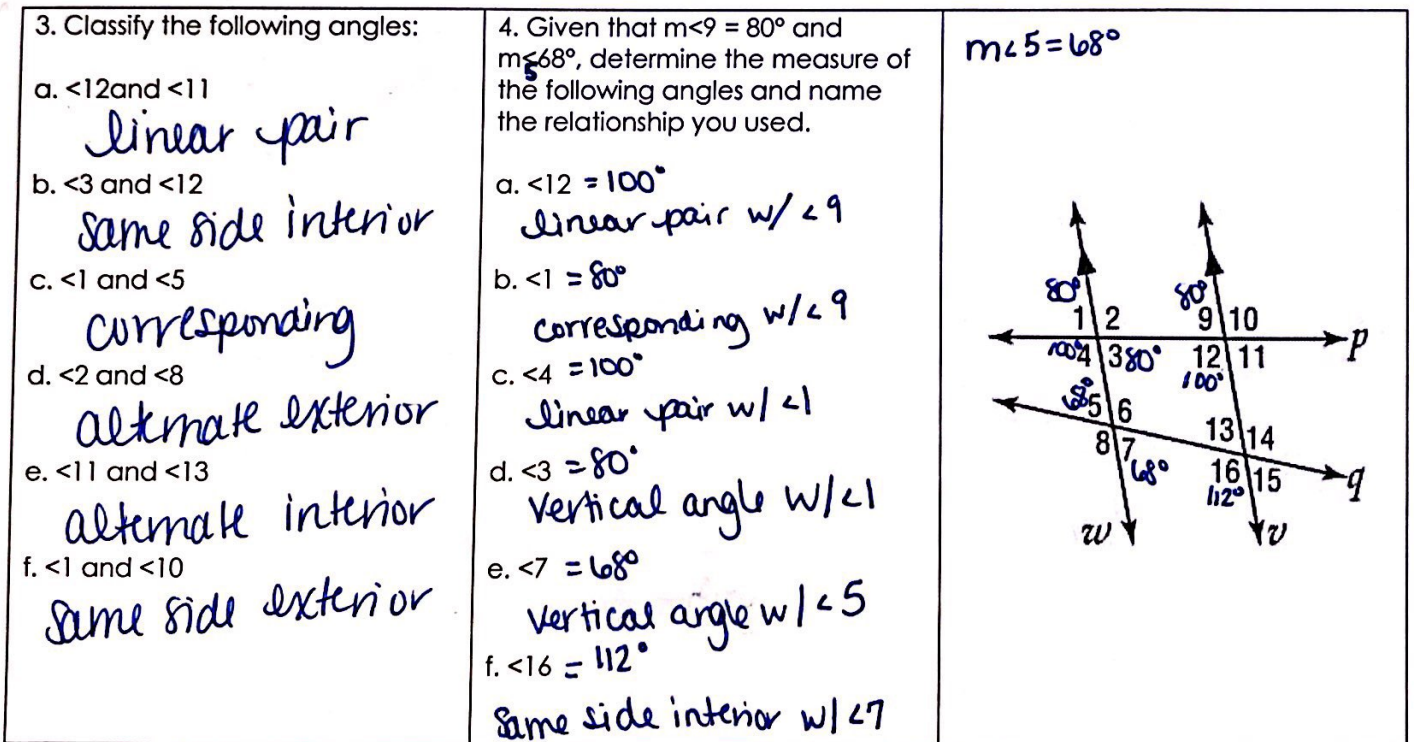 3. Classify the following angles:
a. <12and <11
linear pair
b. <3 and <12
same side interior
c. <1 and <5
corresponding
d. <2 and <8
alternate exterior
e. <11 and <13
alternate interior
f. <1 and <10
same side exterior
4. Given that m<9 = 80° and
m<68°, determine the measure of
5
the following angles and name
the relationship you used.
a. <12 = 100°
linear pair w/ <9
b. <1 = 80°
corresponding w/<9
c. <4 = 100°
linear pair w/ <1
d. <3 = 80°
vertical angle w/<1
e. <7 = 68°
vertical angle w/ <5
f. <16 = 112°
same side interior w/ <7
m<5=68°
80° 80°
1 2 9 10
p
100° 4 3 80° 12 11
100°
68° 5 6
13 14
8 7
68° 16 15
q
112°
w v